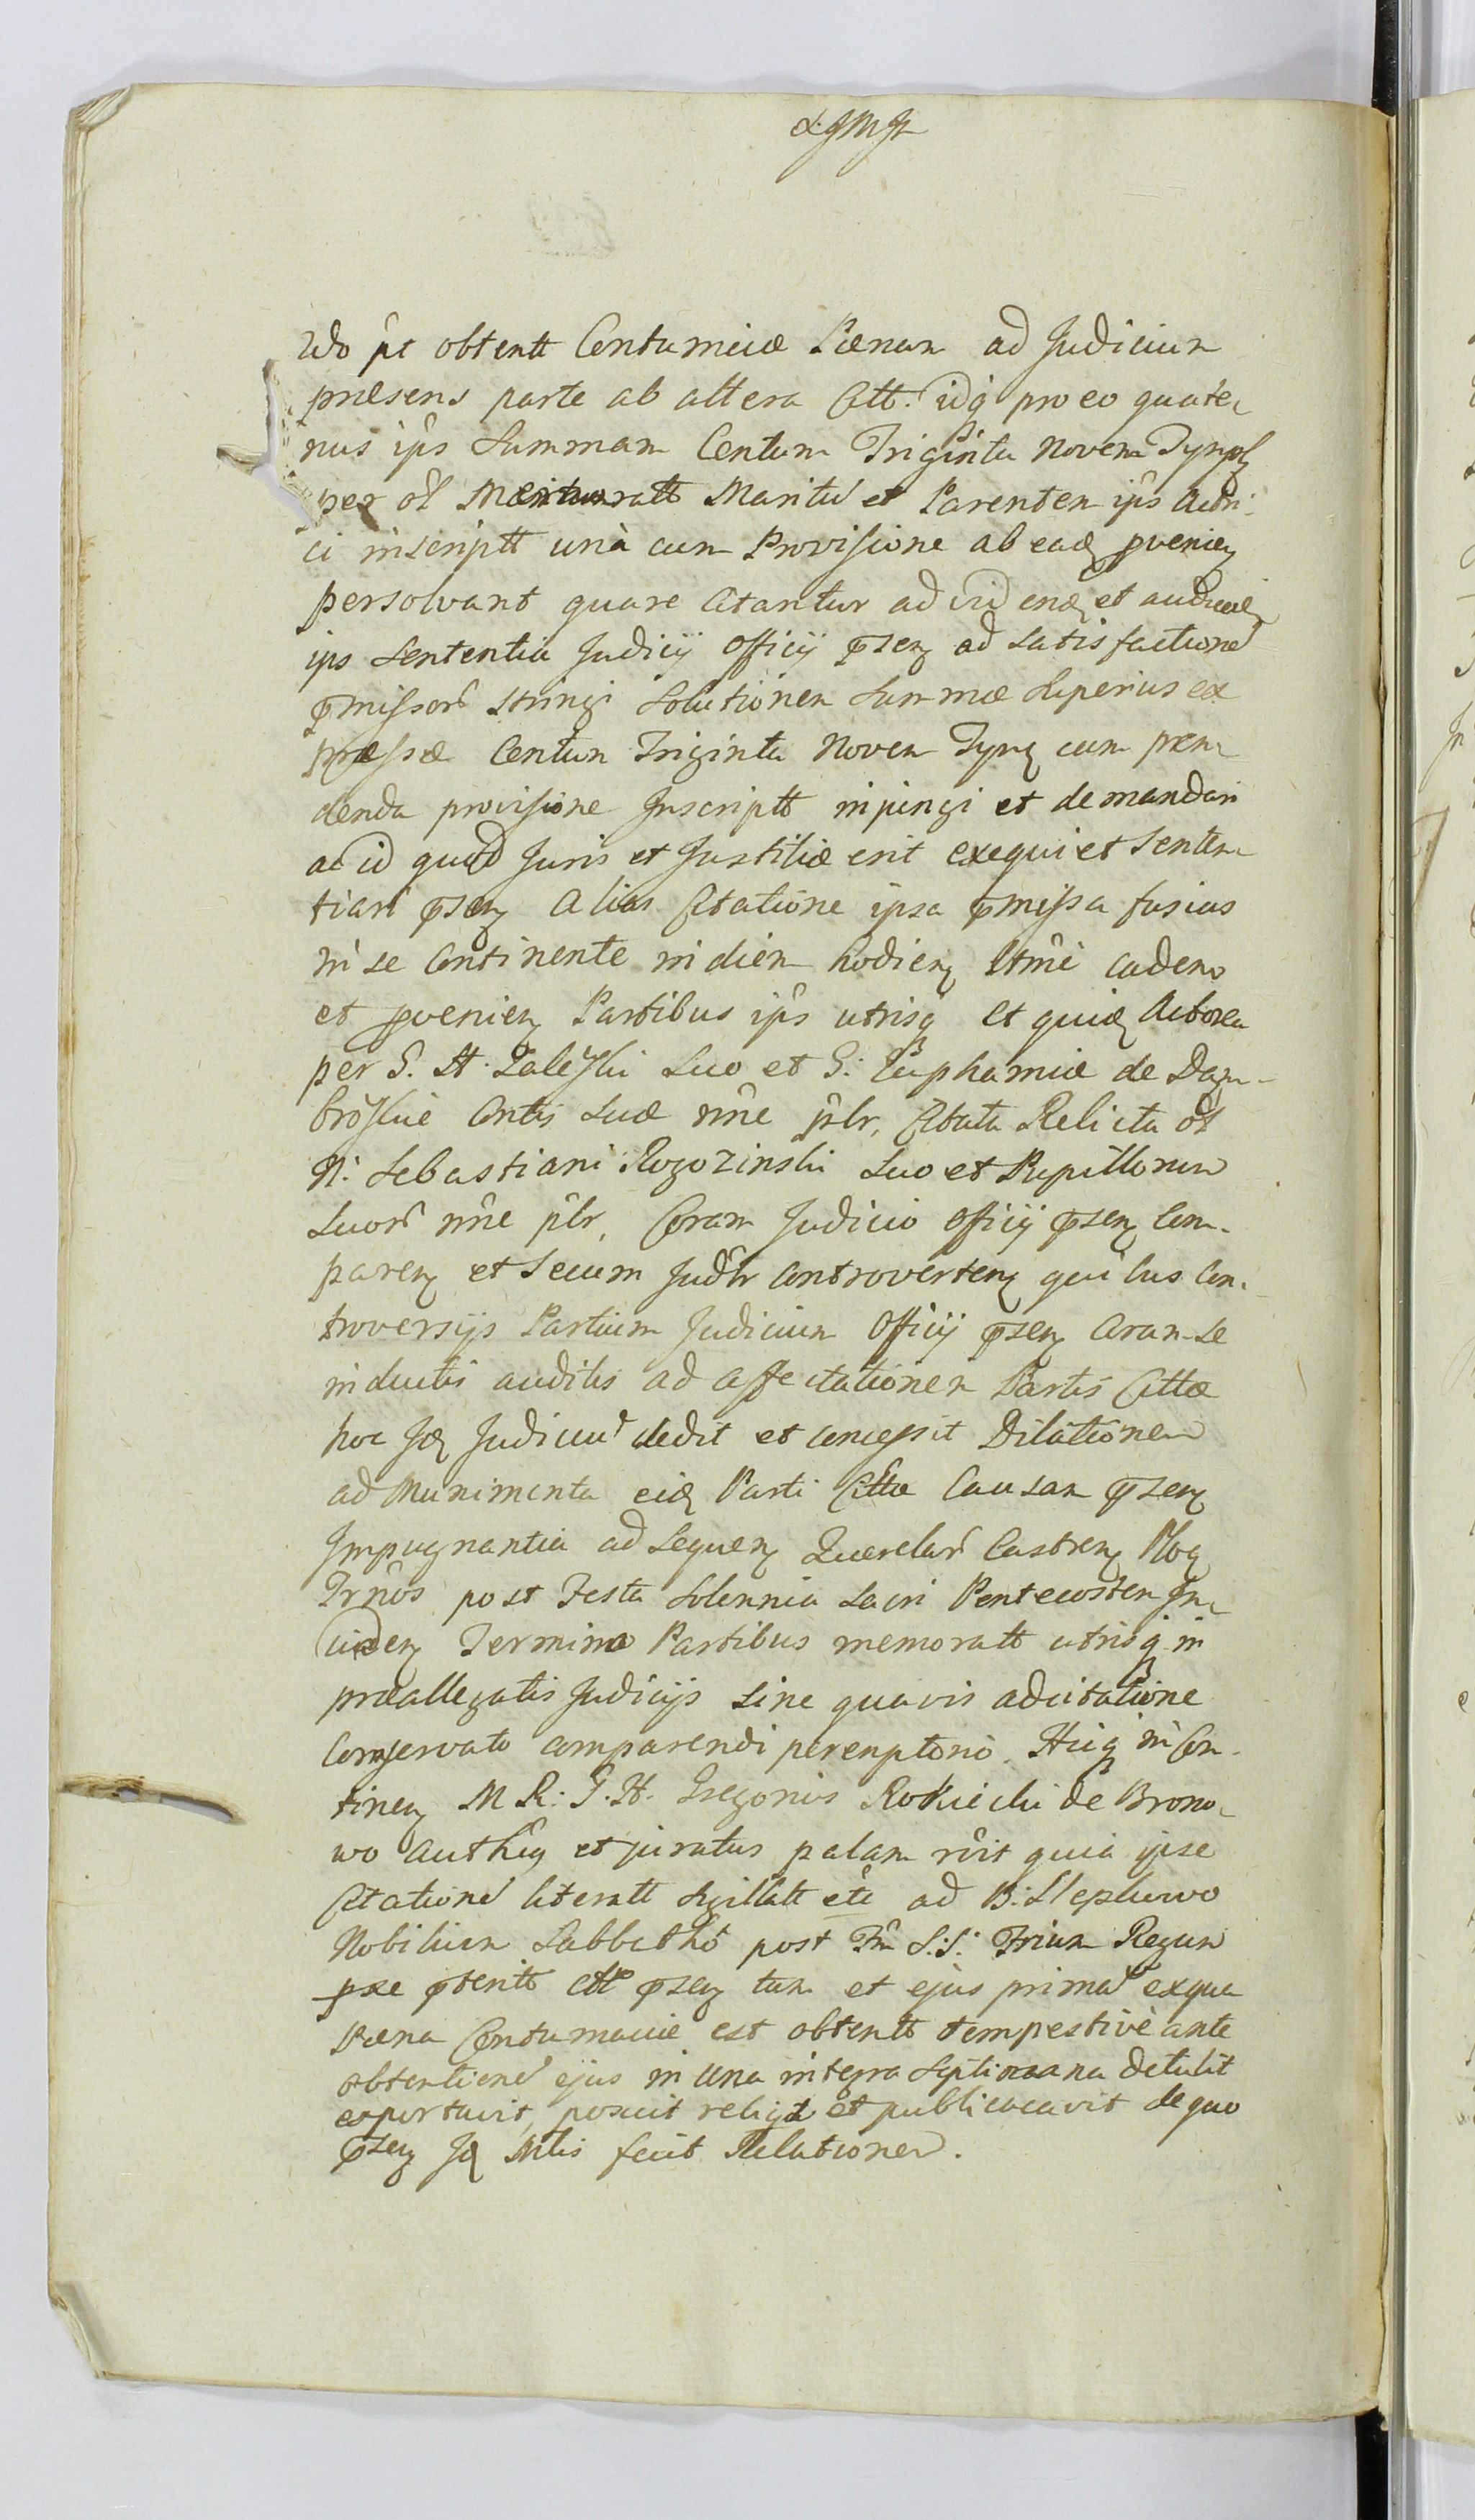 pt obtentt Contumciæ Pænam ad Judicium
præsens parte ab altera Citt. idq pro eo quate-
nus ips Summam Centum Triginta Novem Tynph
per ol Memoratt Maritu et Parentem ips Actri-
ci inscriptt unà cum Provisione ab eadq pvenieng
persolvant quare Citantur ad videndq et audiend
ips Sententia Judicij Officij psenq ad Satisfactione
pmissoru stringi Solutionem Summæ Superius ex
præssæ Centum Triginta Novem Tynq cum pren-
denda provisione Inscriptt injungi et demandari
ac id quid Juris et Justitiæ erit exequi et senten-
tiari psenq Alias Citatione ipsa pmissa fusius
in se Continente in diem hodiernq cadeno
et pvenienq Partibus ips utrisq et quidq Actorea
per G. St. Zaleski Suo et G. Euphamiæ de Dam-
broskie Contis Suæ nne plr, Citata Relicta ol
N. Sebastiani Rogozinski Suo et Pupillorum
Suoru nne plr, Coram Judicio Officij psenq Com-
parenq et Secum Judlr Controvertenq quibus Con-
troversijs Partium Judicium Officij psenq Coram Se
inductis auditis ad affectationem Partis Cittæ
hoc Idq Judiciu dedit et concessit Dilationem
ad Munimenta eidq Parti Cittæ Causam psenq
Impugnantia ad Sequenq Querelaru Castrenq
Trnos post Festa Solennia Sacri Pentecosten In-
cidenq Termino Partibus memoratt utrisq in
præallegatis Judicijs sine quavis adcitatione
Conservato comparendi peremptorio. Hicq in Con-
tinenq M R: G. St. Gregorius Rokicki de Brono-
wo Authenq et juratus palam rcit quia ipse
Citatione literatt Sigillatt etc ad B: Slepkowo
Nobilium Sabbatho post Fm S.S. Trium Regum
pxe ptentt Citt psenq tam et ejus prima exqua
Pæna Contumaciæ est obtentt tempestivè ante
obtentione ejus in una integra Septimana detulit
exportavit, posuit reliqit et publicacavit de quo
psenq Jq Mtis fecit Relationem.